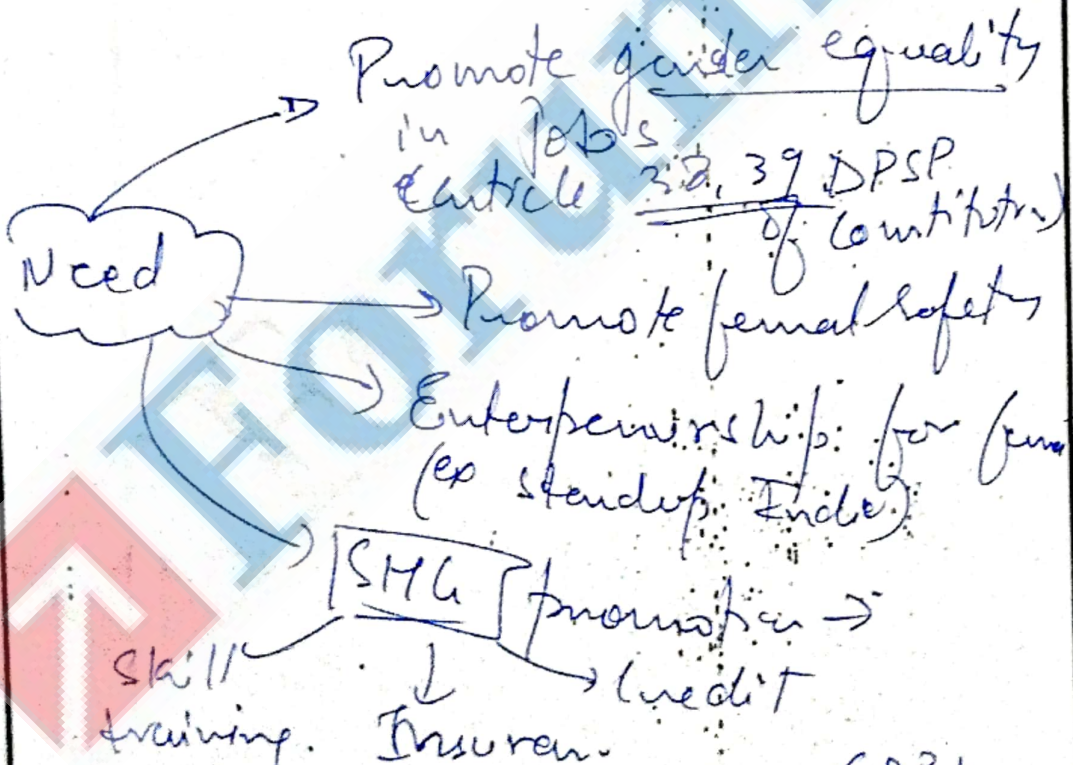 Promote gender equality
in Jobs
(article 38, 39 DPSP
of Constitution)
Need
Promote female safety
Enterpenuirship for
(ex standup India)
SHG promotion →
Skill
training.
Credit
Insuran.
Forum